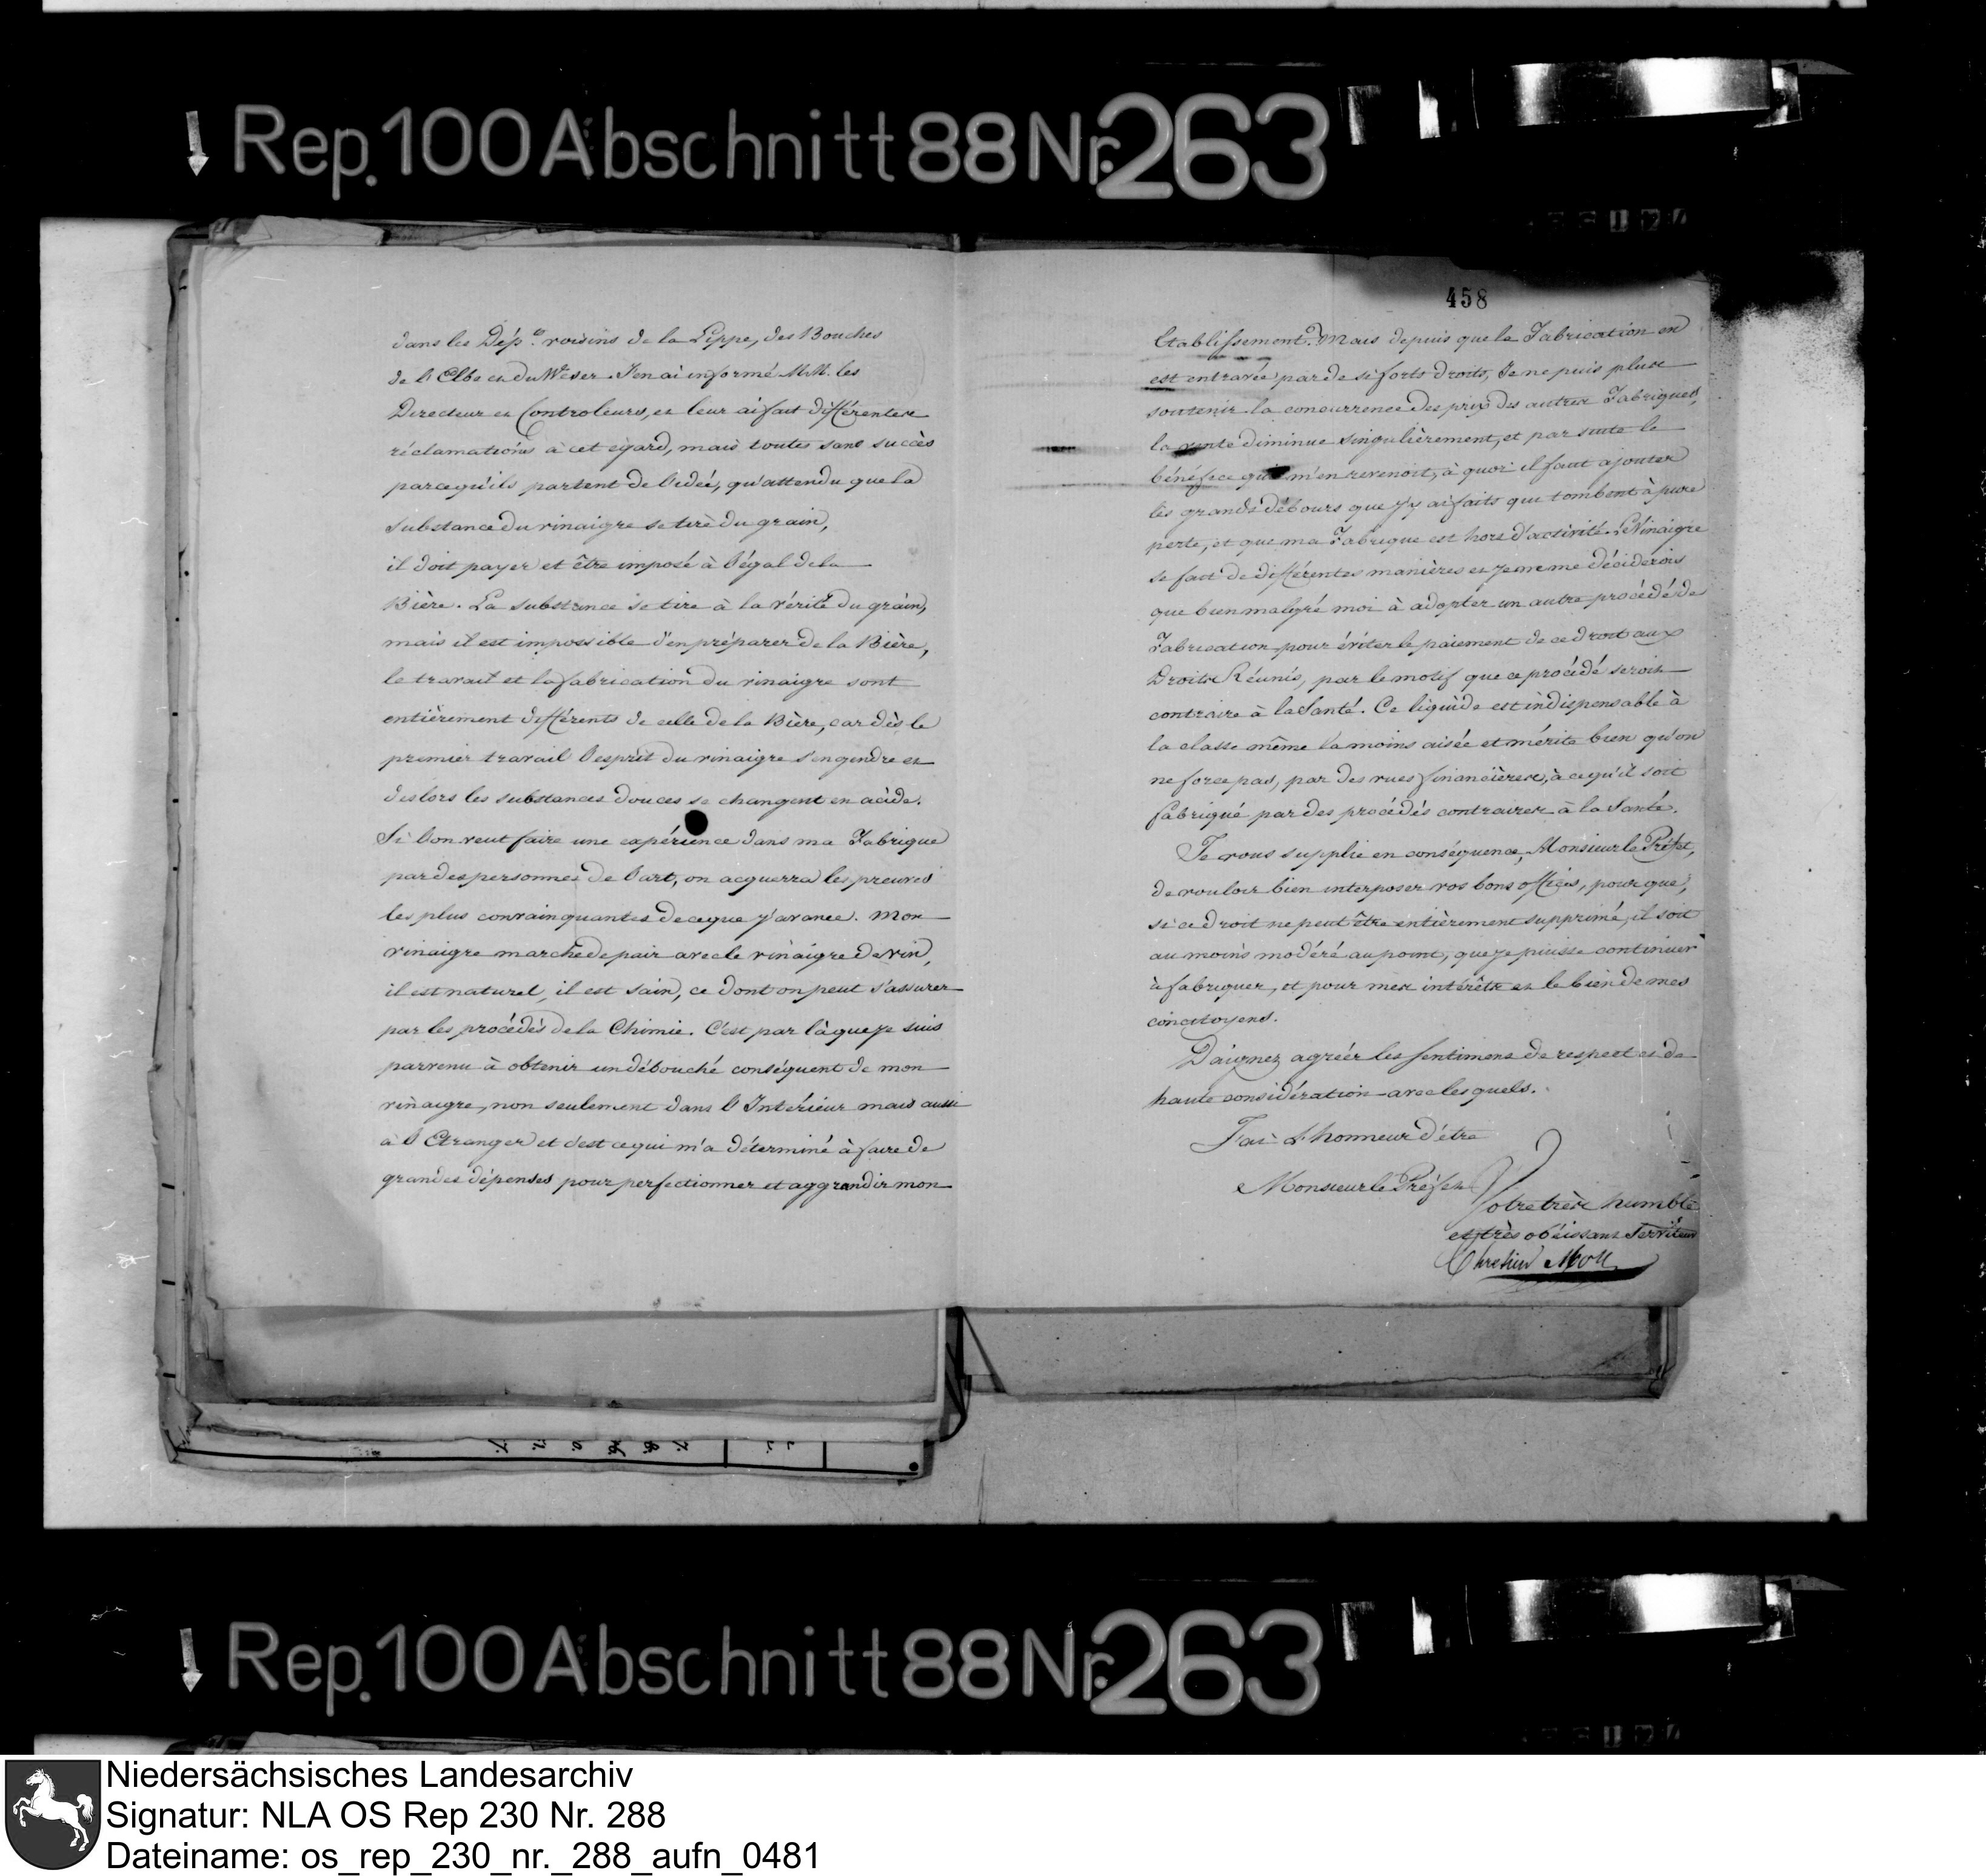 Rep. 100 Abschnitt 88 Nr. 263
dans les Dép.ts voisins de la Lippe, des Bouches
de l'Elbe et du Weser. J'en ai informé M.M. les
Directeur et Controleurs, et leur ai fait différentes
réclamations à cet égard, mais toutes sans succès
parcequ'ils partent de l'idée, qu'attendu que la
substance du vinaigre se tire du grain,
il doit payer et être imposé à l'égal de la
Bière. La substance se tire à la vérité du grain,
mais il est impossible d'en préparer de la Bière,
le travail et la fabrication du vinaigre sont
entièrement différents de celle de la Bière, car dès le
premier travail l'esprit du vinaigre s'engendre et
deslors les substances douces se changent en acide.
Si l'on veut faire une expérience dans ma Fabrique
par des personnes de l'art, on acquerra les preuves
les plus convainquantes de ce que j'avance. Mon
vinaigre marche de pair avec le vinaigre de vin,
il est naturel, il est sain, ce dont on peut s'assurer
par les procédés de la Chimie. C'est par là que je suis
parvenu à obtenir un débouché conséquent de mon
vinaigre, non seulement dans l'Intérieur mais aussi
à l'Etranger et c'est ce qui m'a déterminé à faire de
grandes dépenses pour perfectionner et aggrandir mon
458
Etablissement. Mais depuis que la Fabrication en
est entravée par de si forts droits, Je ne puis plus
soutenir la concurrence des prix des autres Fabriques,
la vente diminue singulièrement, et par suite le
bénéfice qui m'en revenoit, à quoi il faut ajouter
les grands débours que j'y ai faits qui tombent à pure
perte, et que ma Fabrique est hors d'activité. Le Vinaigre
se fait de différentes manières et je ne me déciderois
que bien malgré moi à adopter un autre procédé de
Fabrication pour éviter le paiement de ce droit aux
Droits Réunis, par le motif que ce procédé seroit
contraire à la Santé. Ce liquide est indispensable à
la classe même la moins aisée et mérite bien qu'on
ne force pas, par des vues financières, à ce qu'il soit
fabriqué par des procédés contraires à la Santé.
Je vous supplie en conséquence, Monsieur le Préfet,
de vouloir bien interposer vos bons offices, pour que,
si ce droit ne peut être entièrement supprimé, il soit
au moins modéré au point, que je puisse continuer
à fabriquer, et pour mes intérêts et le bien de mes
concitoyens.
Daignez agréer les sentimens de respect et de
haute considération avec lesquels.
J'ai L'honneur d'être
Monsieur le Préfet
Votre très humble
et très obéissant Serviteur
Chretien Moll
Rep. 100 Abschnitt 88 Nr. 263
Niedersächsisches Landesarchiv
Signatur: NLA OS Rep 230 Nr. 288
Dateiname: os_rep_230_nr._288_aufn_0481